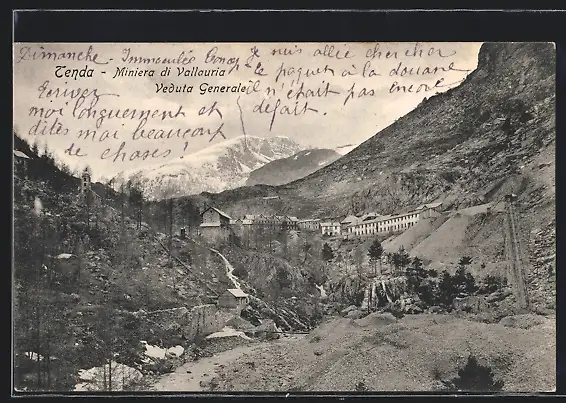 Dimanche - Immaculée Concep.
Je suis allée chercher
Tenda - Miniera di Vallauria
le paquet à la douane
Veduta Generale
il n'était pas encore
défait.
Ecrivez
moi longuement et
dites moi beaucoup
de choses!